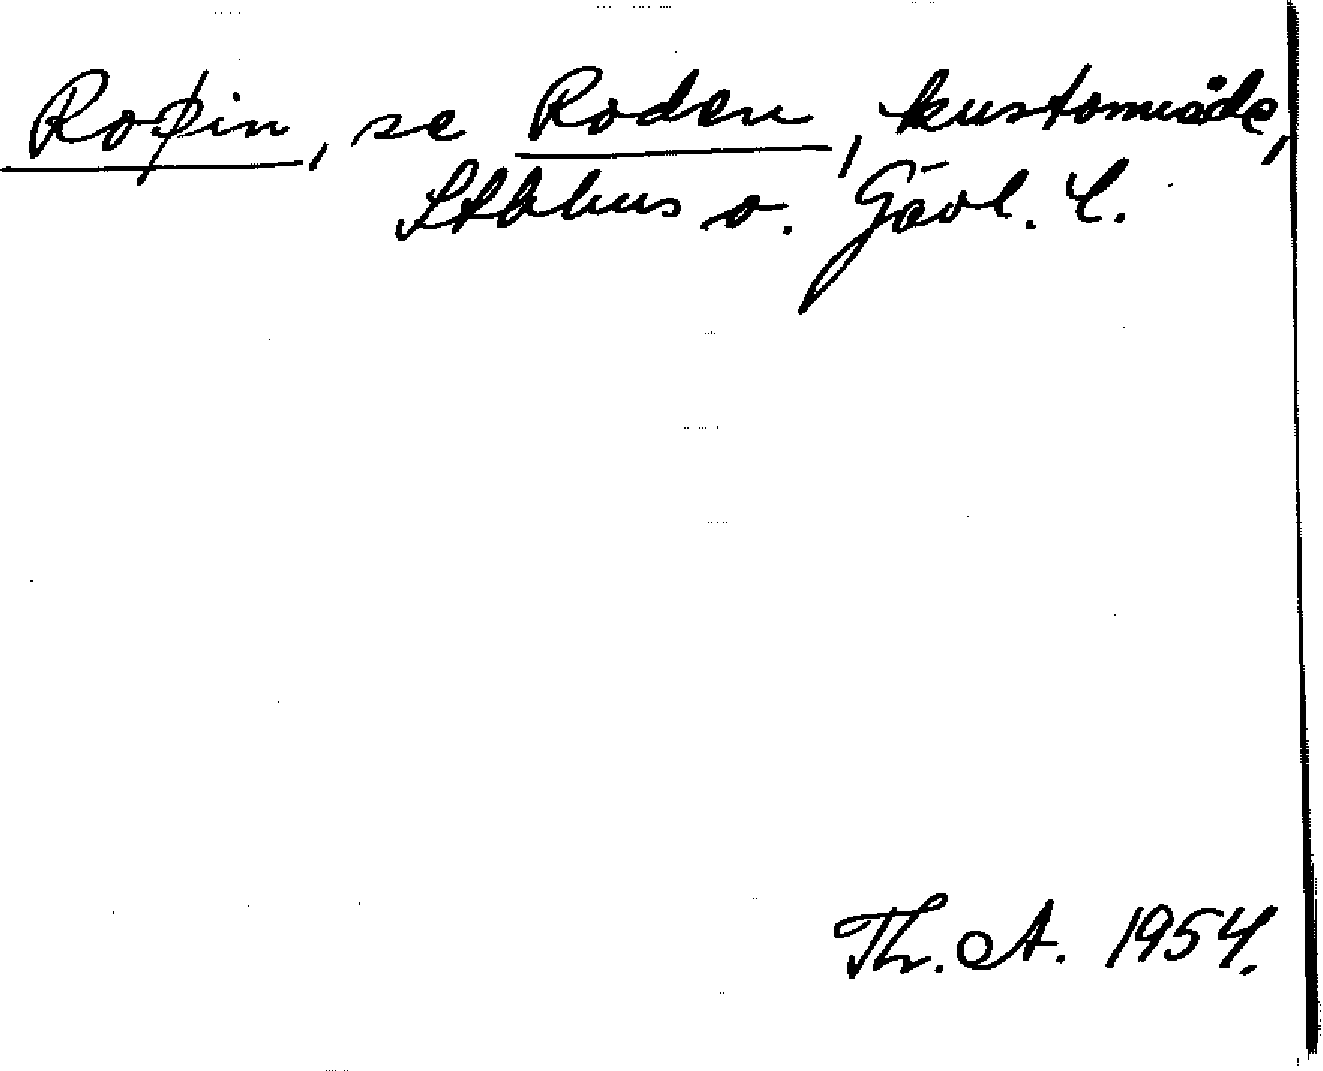 Roþin, se Roden, kustområde,
Sthlms o. Gävl. l.
Th. A. 1954.